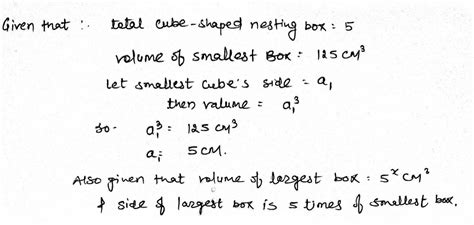 Given that :. total cube-shaped nesting box : 5
volume of smallest Box : 125 cm³
Let smallest cube's side = a₁
then valume = a₁³
so. a₁³ : 125 cm³
a₁: 5 cm.
Also given that volume of largest box : 5ˣ cm³
& side of largest box is 5 times of smallest box.